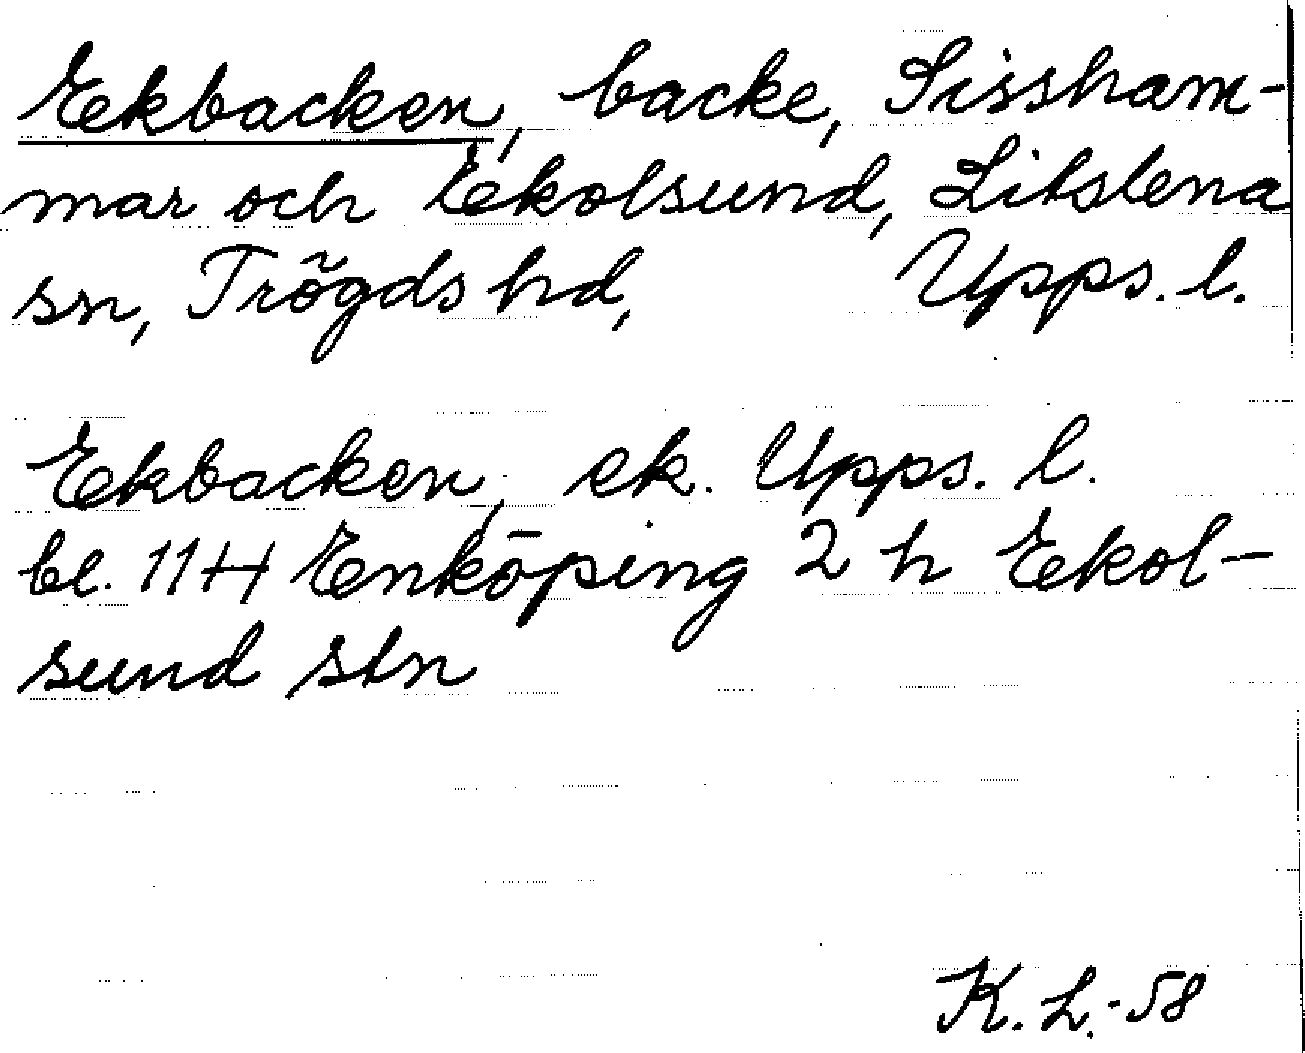 Ekbacken, backe, Sissham-
mar och Ekolsund, Litslena
sn, Trögds hd, Upps. l.
Ekbacken, ek. Upps. l.
bl. 11H Enköping 2 h Ekol-
sund stn
K. L. -58